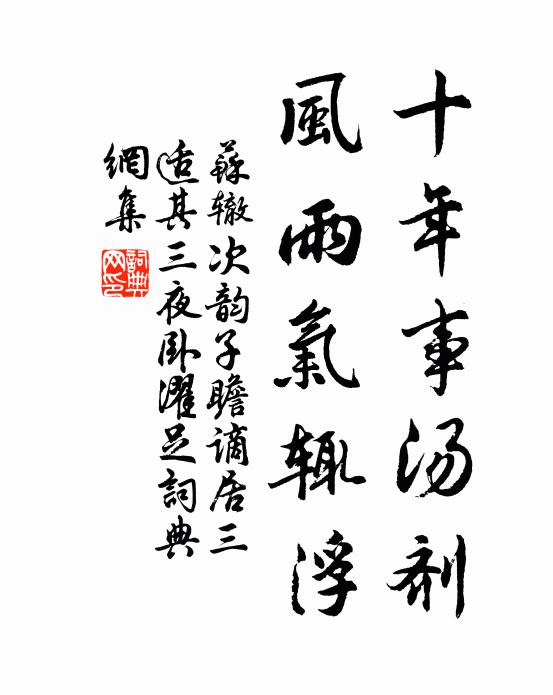 十年事汤剂
風雨氣辄浮
蘇辙次韵子瞻谪居三
适其三夜卧濯足詞典
網集
詞典網印